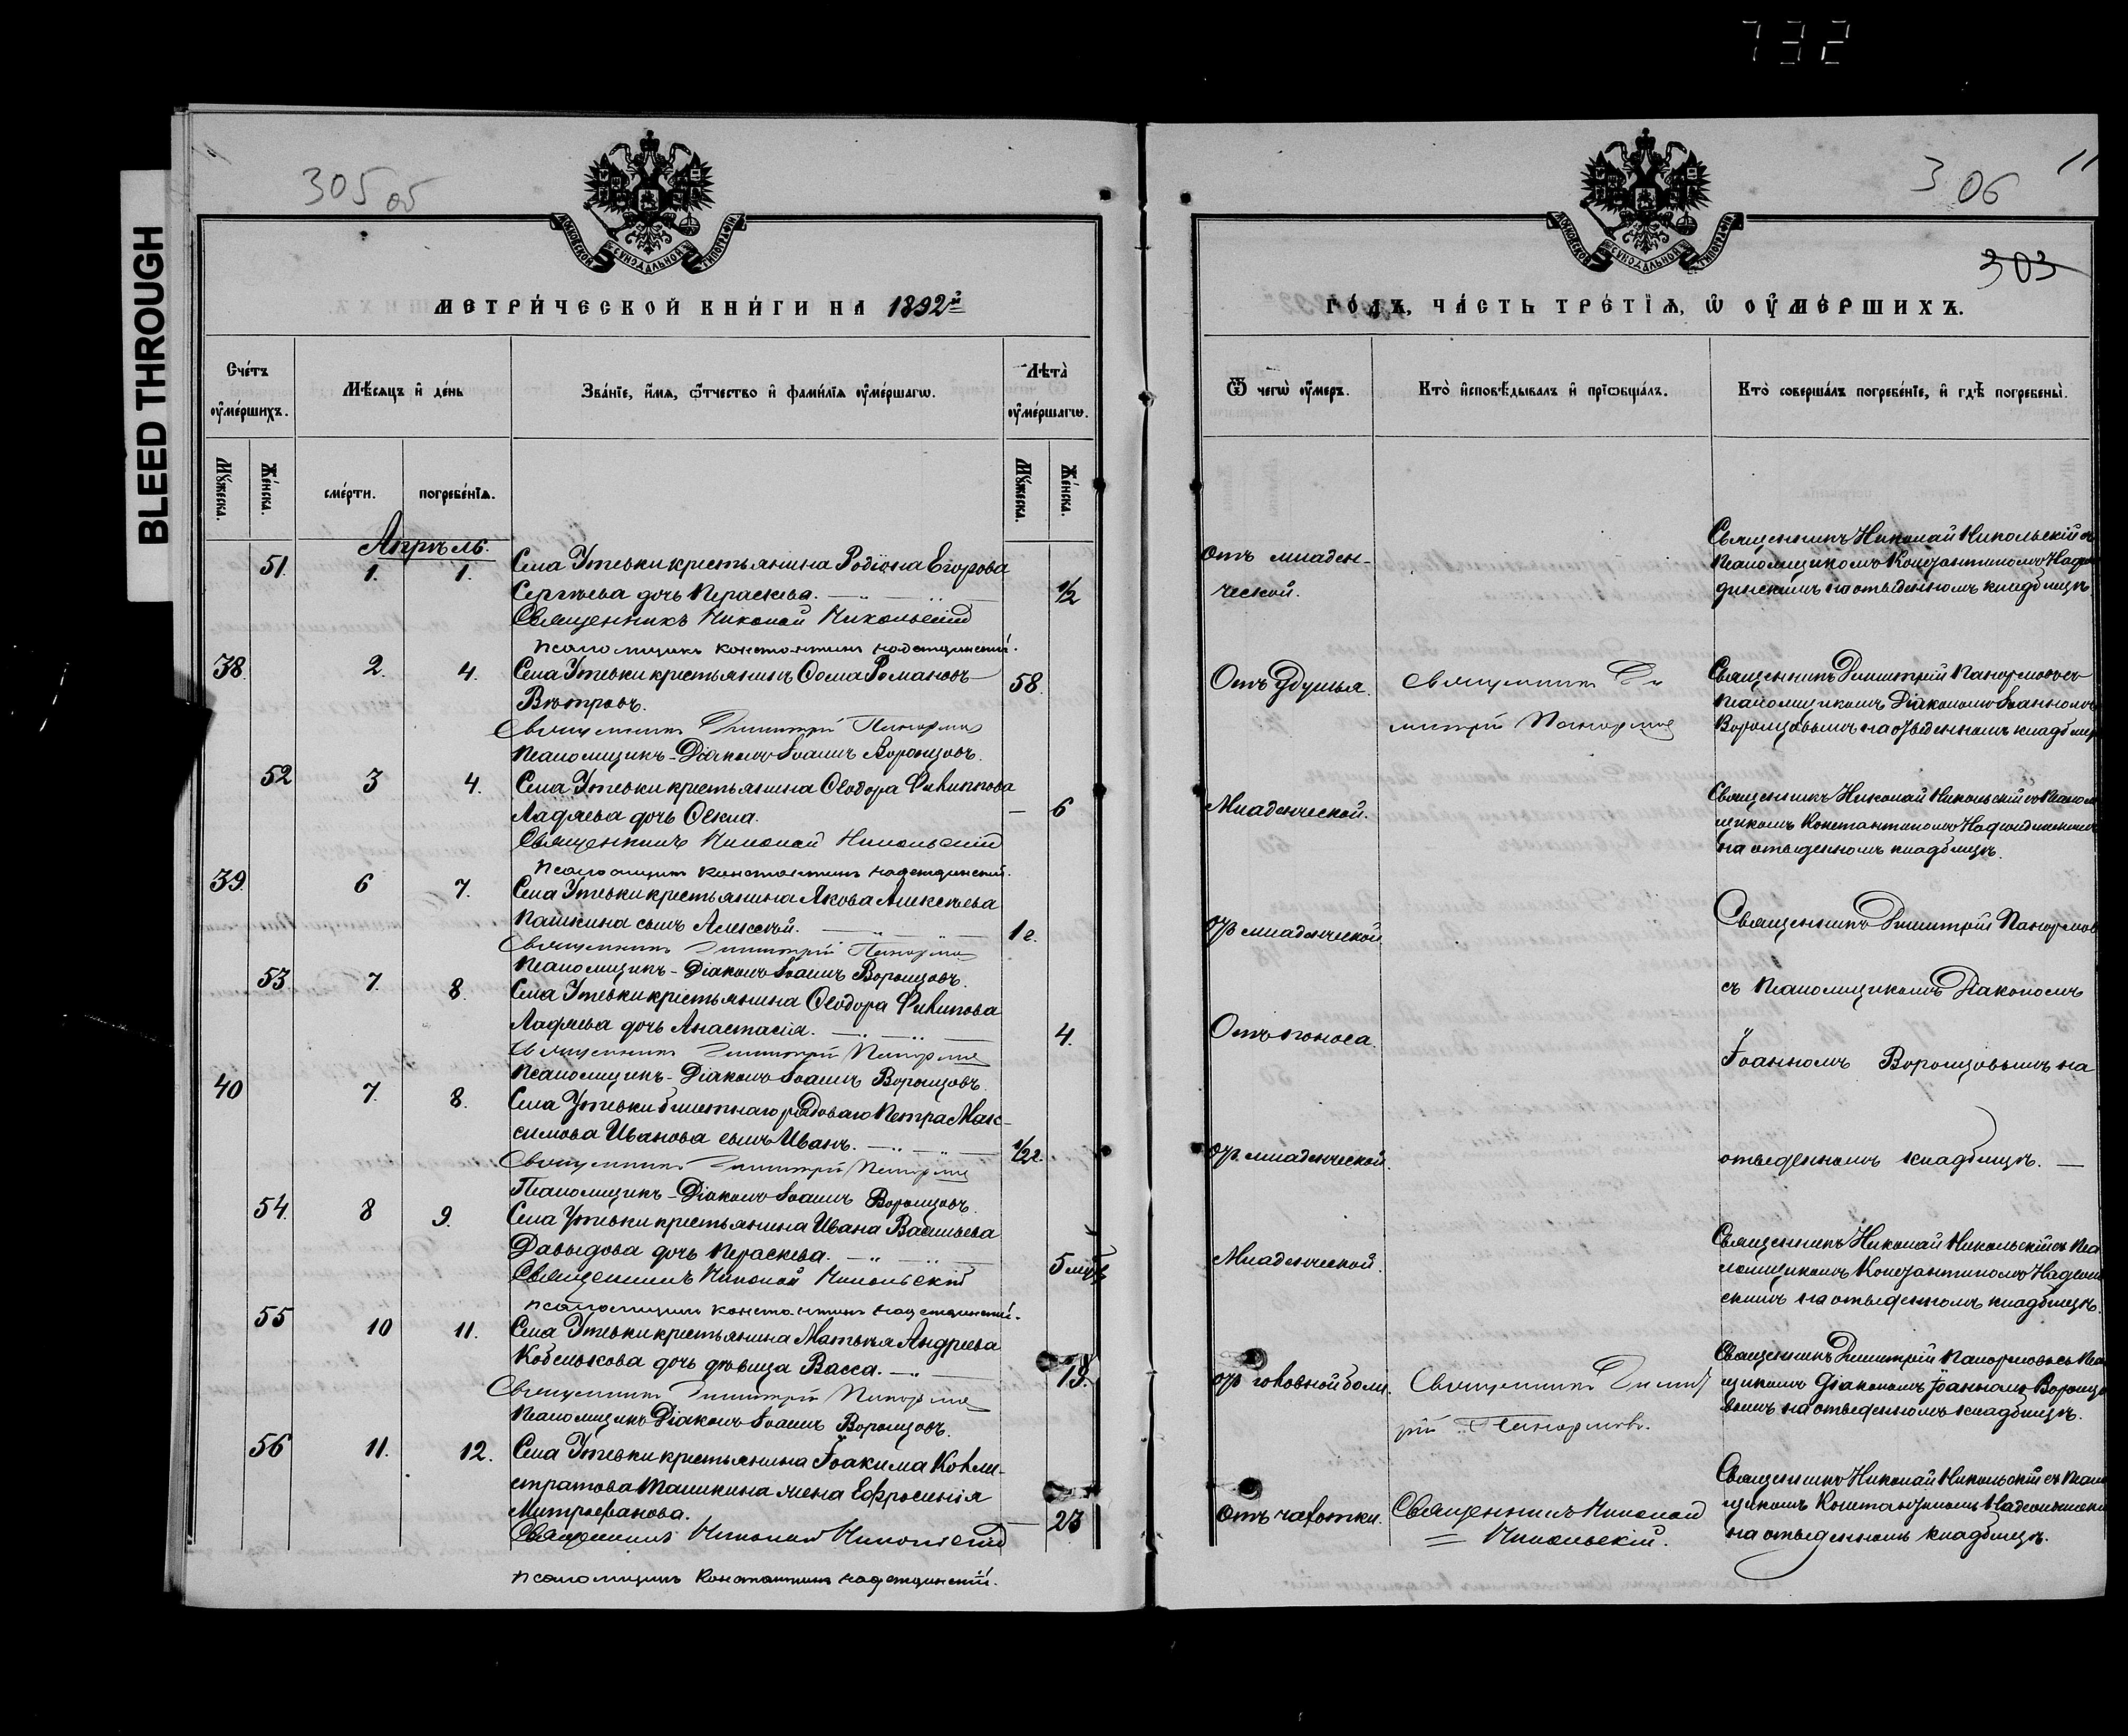 732
BLEED THROUGH
305 об
МОСКОВСКОЙ СѴНОДАЛЬНОЙ ТИПОГРАФІИ
МЕТРИ́ЧЕСКОЙ КНИ́ГИ НА 1892й
Сче́тъ оу҆ме́ршихъ.
Мѣ́сяцъ и҆ де́нь
Зва́ніе, и҆́мя, ѻ҆́тчество и҆ фами́лія оу҆ме́ршагѡ.
Лѣта̀ оу҆ме́ршагѡ.
Мꙋ́жеска.
Же́нска.
сме́рти.
погребе́нїѧ.
Мꙋ́жеска.
Же́нска.
Апрѣль.
51. 1. 1. Села Утевки крестьянина Родіона Егорова
Сергѣева дочь Параскева. 1/2
Священникъ Николай Никольскій
псаломщикъ Константинъ Надеждинскій.
38. 2. 4. Села Утевки крестьянинъ Ѳома Романовъ 58.
Вѣтровъ.
Священникъ Димитрій Панормовъ
Псаломщикъ-Діаконъ Іоаннъ Воронцовъ.
52 3 4. Села Утевки крестьянина Ѳеодора Филиппова
Ладяева дочь Ѳекла. 6
Священникъ Николай Никольскій
Псаломщикъ Константинъ Надеждинскій.
39. 6 7. Села Утевки крестьянина Якова Алексѣева
Пашкина сынъ Алексѣй. 1 г.
Священникъ Димитрій Панормовъ
Псаломщикъ-Діаконъ Іоаннъ Воронцовъ.
53 7. 8. Села Утевки крестьянина Ѳеодора Филипова
Ладяева дочь Анастасія. 4.
Священникъ Димитрій Панормовъ
Псаломщикъ-Діаконъ Іоаннъ Воронцовъ.
40 7. 8. Села Утевки билетнаго рядоваго Петра Мак-
симова Иванова сынъ Иванъ. 1/2 г.
Священникъ Димитрій Панормовъ
Псаломщикъ-Діаконъ Іоаннъ Воронцовъ.
54. 8 9. Села Утевки крестьянина Ивана Васильева
Давыдова дочь Параскева. 5 мѣс
Священникъ Николай Никольскій
псаломщикъ Константинъ Надеждинскій.
55 10 11. Села Утевки крестьянина Матвѣя Андреева
Кобелькова дочь дѣвица Васса. 19.
Священникъ Димитрій Панормовъ
Псаломщикъ Діаконъ Іоаннъ Воронцовъ.
56 11. 12. Села Утевки крестьянина Іоакима
стратова жена Евфросинія
Митрофанова. 23
Священникъ Николай Никольскій
псаломщикъ Константинъ Надеждинскій.
306
11
303
МОСКОВСКОЙ СѴНОДАЛЬНОЙ ТИПОГРАФІИ
ГО́ДЪ, ЧА́СТЬ ТРЕ́ТЇѦ, Ѡ҆ ОУ҆МЕ́РШИХЪ.
Ѿ чегѡ̀ оу҆́меръ.
Кто̀ и҆сповѣ́дывалъ и҆ прїѡбща́лъ.
Кто̀ соверша́лъ погребе́нїе, и҆ гдѣ̀ погребены̀.
Отъ младен-
ческой.
Священникъ Николай Никольскій съ
псаломщикомъ Константиномъ Надеж
динскимъ на отведенномъ кладбищѣ
Отъ удушья.
Священникъ Ди
митрій Панормовъ
Священникъ Димитрій Панормовъ съ
псаломщикомъ Діакономъ Іоанномъ
Воронцовымъ на отведенномъ кладбищѣ
Младенческой.
Священникъ Николай Никольскій съ псалом
щикомъ Константиномъ Надеждинскимъ
на отведенномъ кладбищѣ.
отъ младенческой
Священникъ Димитрій Панормовъ
съ псаломщикомъ Діакономъ
Отъ поноса.
Іоанномъ Воронцовымъ на
отъ младенческой.
отведенномъ кладбищѣ.
Младенческой.
Священникъ Николай Никольскій съ пса
ломщикомъ Константиномъ Надеждин
скимъ на отведенномъ кладбищѣ.
отъ головной боли.
Священникъ Димит
рій Панормовъ.
Священникъ Димитрій Панормовъ съ псалом
щикомъ Діакономъ Іоанномъ Воронцо
вымъ на отведенномъ кладбищѣ.
Отъ чахотки.
Священникъ Николай
Никольскій.
Священникъ Николай Никольскій съ псалом
щикомъ Константиномъ Надеждинскимъ
на отведенномъ кладбищѣ.